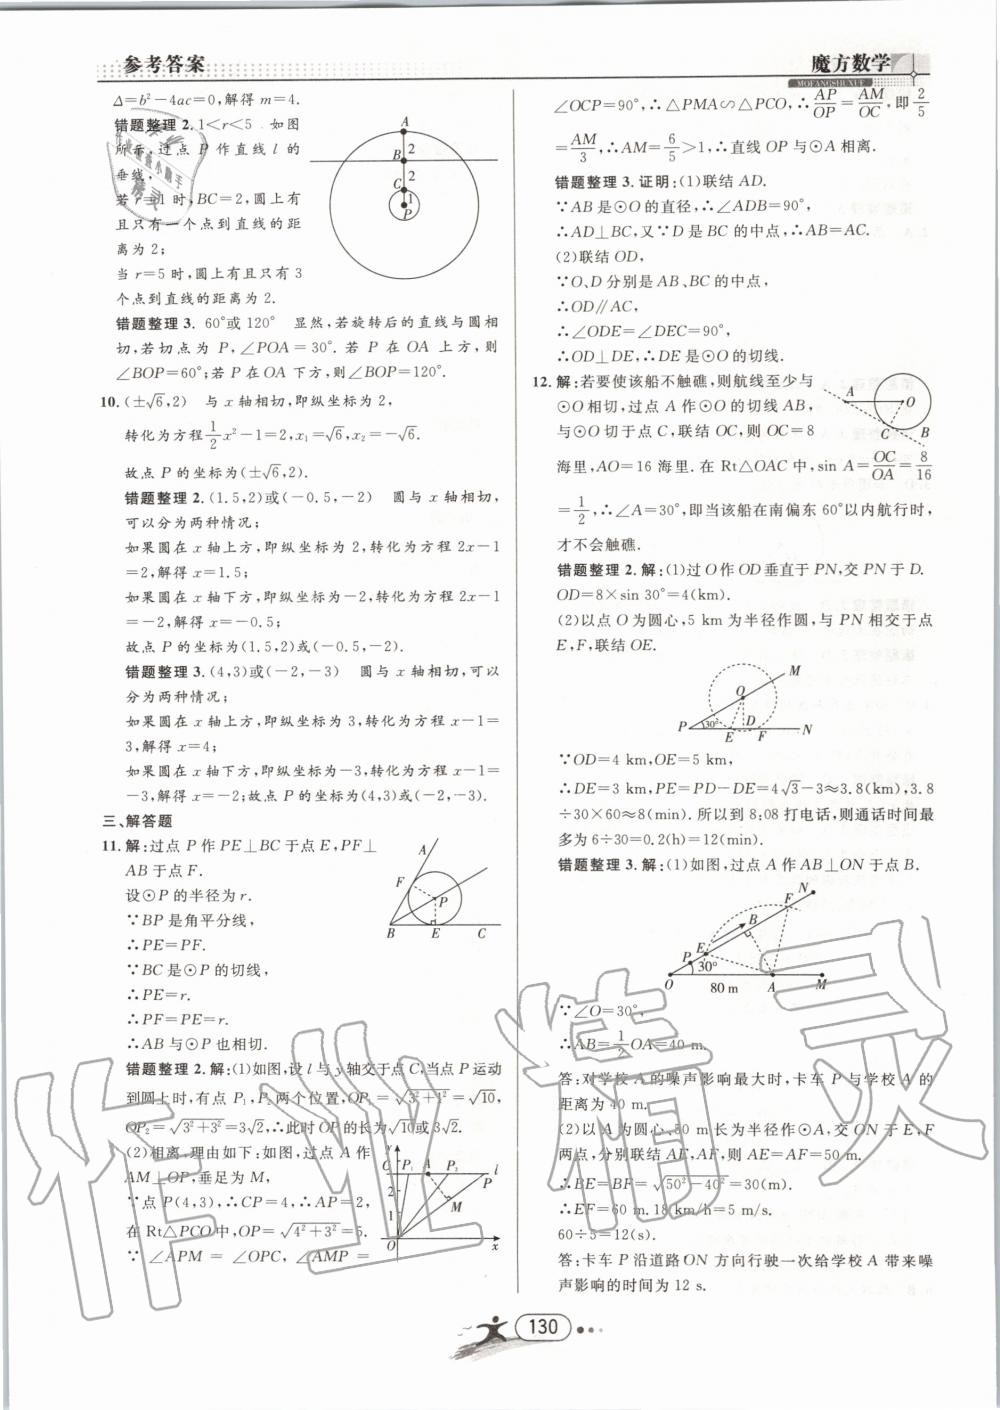 参考答案
魔方数学
MOFANGSHUXUE
Δ=b²-4ac=0,解得 m=4.
错题整理 2. 1<r<5 如图
所示,过点 P 作直线 l 的
垂线,
若 r=1 时,BC=2,圆上有
且只有一个点到直线的距
离为 2;
当 r=5 时,圆上有且只有 3
个点到直线的距离为 2.
A
B
2
C
2
1
P
错题整理 3. 60°或 120° 显然,若旋转后的直线与圆相
切,若切点为 P,∠POA=30°. 若 P 在 OA 上方,则
∠BOP=60°;若 P 在 OA 下方,则∠BOP=120°.
10. (±√6,2) 与 x 轴相切,即纵坐标为 2,
转化为方程1/2x²-1=2,x₁=√6,x₂=-√6.
故点 P 的坐标为(±√6,2).
错题整理 2. (1.5,2)或(-0.5,-2) 圆与 x 轴相切,
可以分为两种情况;
如果圆在 x 轴上方,即纵坐标为 2,转化为方程 2x-1
=2,解得 x=1.5;
如果圆在 x 轴下方,即纵坐标为-2,转化为方程 2x-1
=-2,解得 x=-0.5;
故点 P 的坐标为(1.5,2)或(-0.5,-2).
错题整理 3. (4,3)或(-2,-3) 圆与 x 轴相切,可以
分为两种情况;
如果圆在 x 轴上方,即纵坐标为 3,转化为方程 x-1=
3,解得 x=4;
如果圆在 x 轴下方,即纵坐标为-3,转化为方程 x-1=
-3,解得 x=-2;故点 P 的坐标为(4,3)或(-2,-3).
三、解答题
11. 解:过点 P 作 PE⊥BC 于点 E,PF⊥
AB 于点 F.
设⊙P 的半径为 r.
∵BP 是角平分线,
∴PE=PF.
∵BC 是⊙P 的切线,
∴PE=r.
∴PF=PE=r.
∴AB 与⊙P 也相切.
A
F
P
B E C
错题整理 2. 解:(1)如图,设 l 与 y 轴交于点 C,当点 P 运动
到圆上时,有点 P₁,P₂ 两个位置,OP₁=√3²+1²=√10,
OP₂=√3²+3²=3√2,∴此时 OP 的长为√10或 3√2.
(2)相离,理由如下:如图,过点 A 作
AM⊥OP,垂足为 M,
∵点 P(4,3),∴CP=4,∴AP=2,
在 Rt△PCO 中,OP=√4²+3²=5.
∵ ∠APM = ∠OPC, ∠AMP =
y
C P₁ A P₂ l
P
2
M
1
O x
∠OCP=90°,∴△PMA∽△PCO,∴AP/OP=AM/OC,即2/5
=AM/3,∴AM=6/5>1,∴直线 OP 与⊙A 相离.
错题整理 3. 证明:(1)联结 AD.
∵AB 是⊙O 的直径,∴∠ADB=90°,
∴AD⊥BC,又∵D 是 BC 的中点,∴AB=AC.
(2)联结 OD,
∵O、D 分别是 AB、BC 的中点,
∴OD∥AC,
∴∠ODE=∠DEC=90°,
∴OD⊥DE,∴DE 是⊙O 的切线.
12. 解:若要使该船不触礁,则航线至少与
⊙O 相切,过点 A 作⊙O 的切线 AB,
与⊙O 切于点 C,联结 OC,则 OC=8
海里,AO=16 海里. 在 Rt△OAC 中,sin A=OC/OA=8/16
=1/2,∴∠A=30°,即当该船在南偏东 60°以内航行时,
才不会触礁.
A
O
C B
错题整理 2. 解:(1)过 O 作 OD 垂直于 PN,交 PN 于 D.
OD=8×sin 30°=4(km).
(2)以点 O 为圆心,5 km 为半径作圆,与 PN 相交于点
E,F,联结 OE.
M
O
P 30° E D F N
∵OD=4 km,OE=5 km,
∴DE=3 km,PE=PD-DE=4√3-3≈3.8(km),3.8
÷30×60≈8(min). 所以到 8:08 打电话,则通话时间最
多为 6÷30=0.2(h)=12(min).
错题整理 3. 解:(1)如图,过点 A 作 AB⊥ON 于点 B.
N
F
B
E
P
30°
O 80 m A M
∵∠O=30°,
∴AB=1/2OA=40 m.
答:对学校 A 的噪声影响最大时,卡车 P 与学校 A 的
距离为 40 m.
(2)以 A 为圆心,50 m 长为半径作⊙A,交 ON 于 E,F
两点,分别联结 AE,AF,则 AE=AF=50 m.
∴BE=BF=√50²-40²=30(m).
∴EF=60 m. 18 km/h=5 m/s.
60÷5=12(s).
答:卡车 P 沿道路 ON 方向行驶一次给学校 A 带来噪
声影响的时间为 12 s.
130
作业精灵